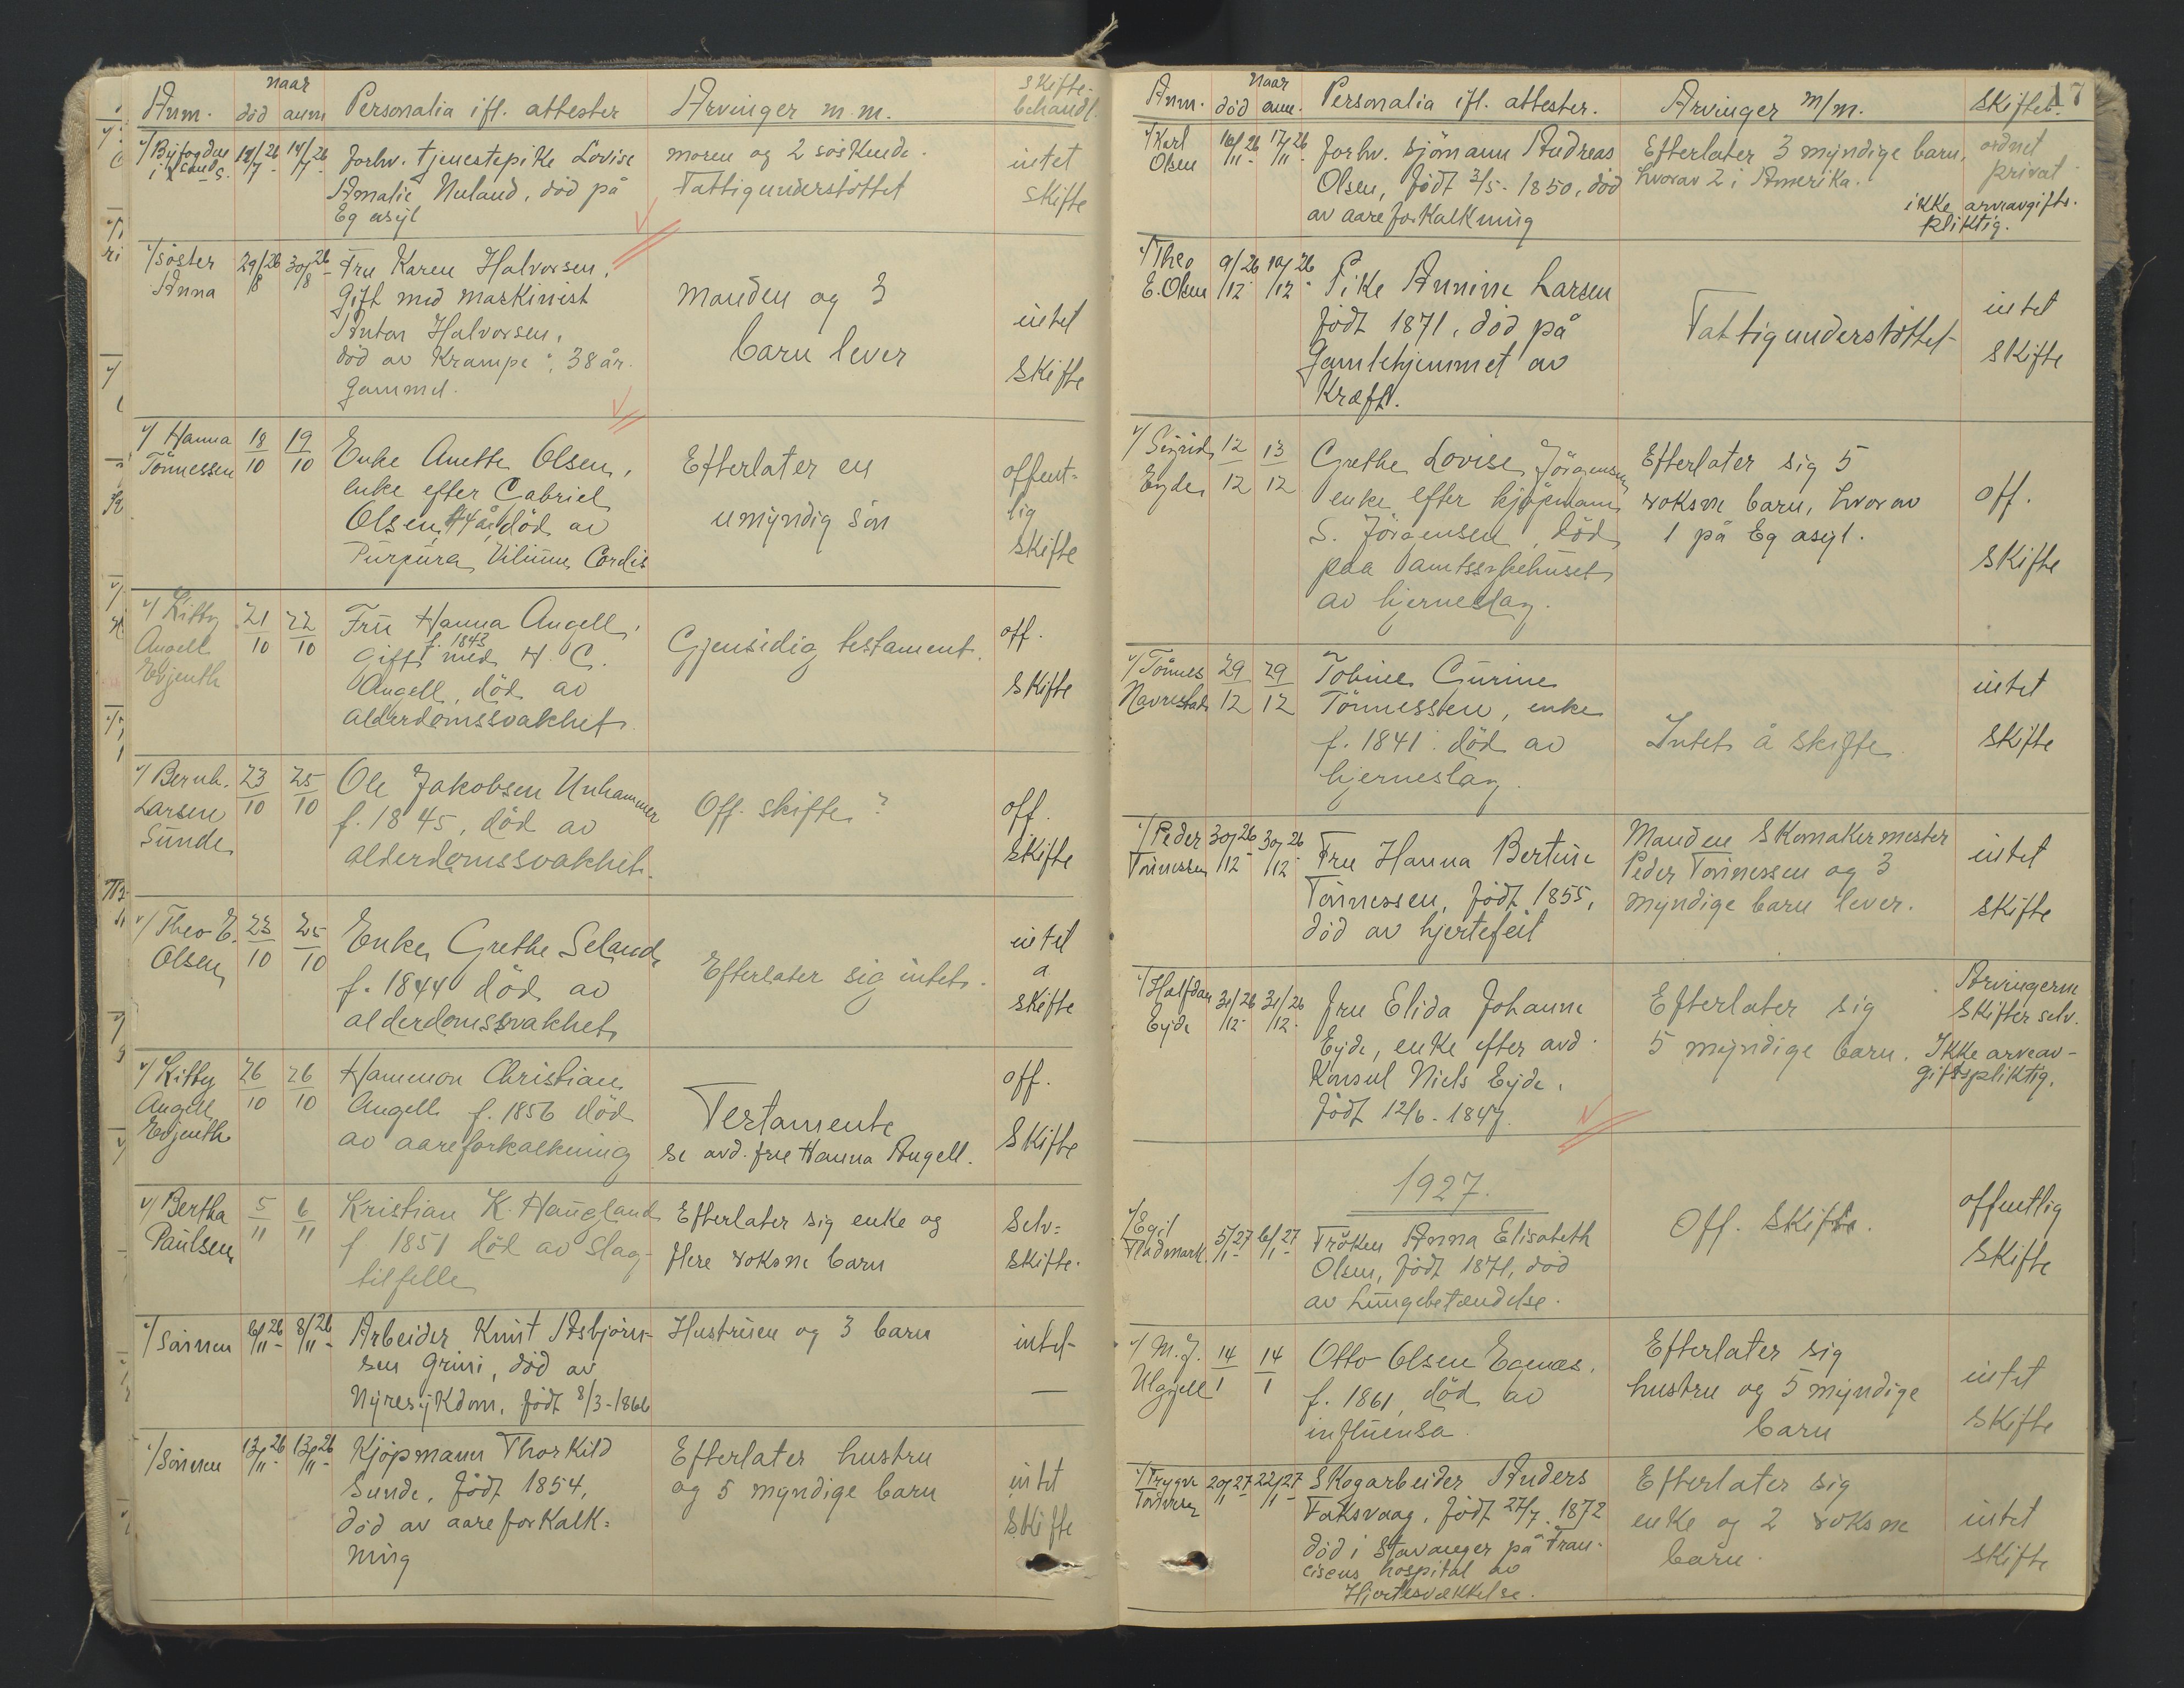 naar
Anm. död anm Personalia ifl. attester Arvinger m.m. Skifte-
behandl.
v/ Byfogden 12/7-26 14/7-26 Forhv. tjenestepike Lovise moren og 2 søskende. intet
Amalie Nuland, död på Fattigunderstöttet skifte
Eg asyl
v/ söster 29/8 26 30/8-26 Fru Karen Halvorsen,
Anna Gift med maskinist manden og 3 intet
Anton Halvorsen, barn lever skifte
död av Krampe, 38 år.
Gammel.
v/ Hanna 18/10 19/10 Enke Anette Olsen, Efterlater en offent-
Tönnessen enke efter Gabriel umyndig sön lig
Olsen, 44 år, död av skifte
Purpura, Vitium Cordis
v/ Kitty 21/10 22/10 Fru Hanna Angell, Gjensidig testament. off.
Angell f. 1843
Evjenth gift med H. C. skifte
Angell, död av
alderdomssvakhet.
v/ Bernh. 23/10 25/10 Ole Jakobsen Unhammer Off. skifte? off.
Larsen f. 1845, död av skifte
Sunde alderdomssvakhet.
v/ Theo E. 23/10 25/10 Enke Grethe Seland Efterlater sig intet. intet
Olsen f. 1844 död av a
alderdomssvakhet skifte
v/ Kitty 26/10 26/10 Hammon Christian off.
Angell Angell f. 1856 död Tertamente
Evjenth av aareforkalkning se avd. fru Hanna Angell. skifte
v/ Bertha 5/11 6/11 Kristian K. Haugland Efterlater sig enke og Selv-
Paulsen f 1851 död av slag- flere voksne barn skifte.
tilfelle
v/ Sönnen 6/11-26 8/11-26 Arbeider Knut Asbjörn- Hustruen og 3 barn intet-
sen Grini, död av
Nyresykdom, födt 8/3-1866 —
v/ Sönnen 13/11-26 13/11-26 Kjöpmann Thorkild Efterlater hustru
Sunde, födt 1854, og 5 myndige barn intet
död av aareforkalk- skifte
ning
17
naar
Anm. död anm. Personalia ifl. attester. Arvinger m/m. Skifteb.
v/ Karl 16/11-26 17/11-26 Forhv. sjömann Andreas Efterlater 3 myndige barn, ordnet
Olsen Olsen, födt 3/5-1850, död hvorav 2 i Amerika. privat
av aareforkalkning ikke arveavgifts-
pliktig.
v/ Theo 9/12-26 10/12-26 Pike Annine Larsen intet
E. Olsen födt 1871, död på Fattigunderstöttet- skifte
Gamlehjemmet av
Kræft.
v/ Sigrid 12/12 13/12 Grethe Lovise Jörgensen Efterlater sig 5
Eyde enke efter kjöpmann voksne barn, hvorav off.
S. Jörgensen, död 1 på Eg asyl. skifte
paa amtssykehuset
av hjerneslag.
v/ Tönnes 29/12 29/12 Tobine Gurine intet
Navrestad Tönnessen, enke Intet å skifte skifte
f. 1841. död av
hjerneslag.
v/ Peder 30/12-26 30/12-26 Fru Hanna Bertine Manden Skomakermester intet
Tönnessen Tönnessen, födt 1855, Peder Tönnessen og 3
död av hjertefeil myndige barn lever. skifte
v/ Halfdan 31/12-26 31/12-26 Fru Elida Johanne Efterlater sig Arvingerne
Eyde Eyde, enke efter avd. 5 myndige barn. skifter selv.
Konsul Niels Eyde, Ikke arveav-
födt 12/6-1847. giftspliktig.
1927.
v/ Egil 5/1-27 6/1-27 Fröken Anna Elisabeth Off. Skifte. offentlig
Fladmark. Olsen, födt 1871, död skifte
av Lungebetændelse.
v/ M. J. 14/1 14/1 Otto Olsen Egenæs, Efterlater sig intet
Ulgjell f. 1861, död av hustru og 5 myndige skifte
influensa barn
v/ Trygve 20/1-27 22/1-27 Skogarbeider Anders Efterlater sig
Faksvaag, födt 27/7. 1872 enke og 2 voksne intet
död i Stavanger på Fran- barn. skifte
ciscus hospital av
Hjertesvækkelse.